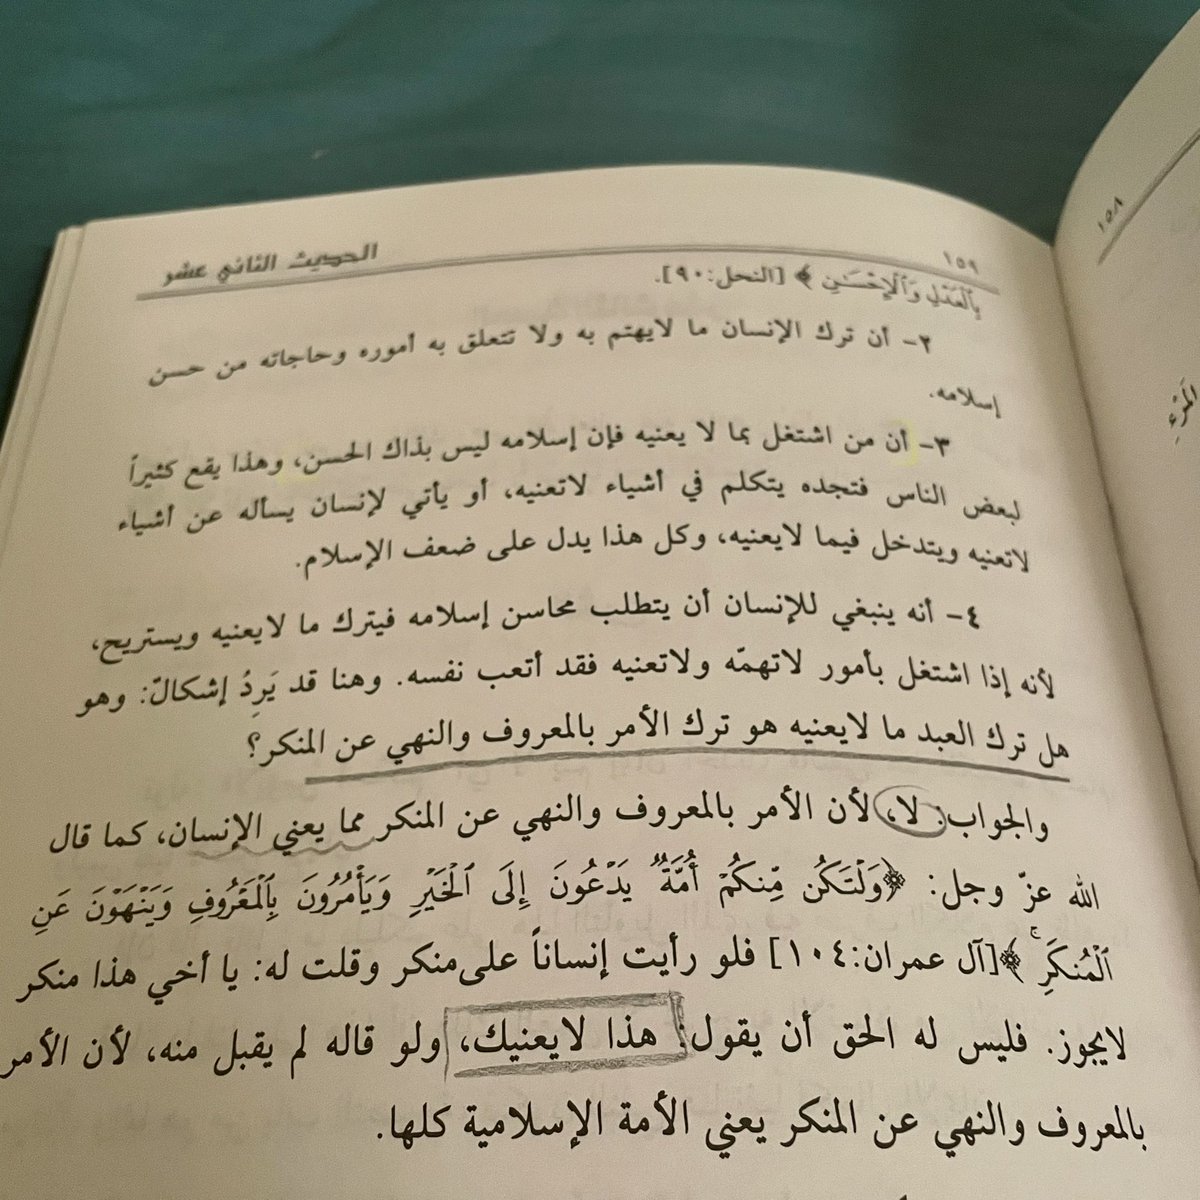 ١٥٩ الحديث الثاني عشر
بِٱلْعَدْلِ وَٱلْإِحْسَٰنِ ﴾ [النحل:٩٠].
٢- أن ترك الإنسان ما لايهتم به ولا تتعلق به أموره وحاجاته من حسن
إسلامه.
٣- أن من اشتغل بما لا يعنيه فإن إسلامه ليس بذاك الحسن، وهذا يقع كثيراً
لبعض الناس فتجده يتكلم في أشياء لاتعنيه، أو يأتي لإنسان يسأله عن أشياء
لاتعنيه ويتدخل فيما لايعنيه، وكل هذا يدل على ضعف الإسلام.
٤- أنه ينبغي للإنسان أن يتطلب محاسن إسلامه فيترك ما لايعنيه ويستريح،
لأنه إذا اشتغل بأمور لاتهمّه ولاتعنيه فقد أتعب نفسه. وهنا قد يَرِدُ إشكالٌ: وهو
هل ترك العبد ما لايعنيه هو ترك الأمر بالمعروف والنهي عن المنكر؟
والجواب: لا، لأن الأمر بالمعروف والنهي عن المنكر مما يعني الإنسان، كما قال
الله عزّ وجل: ﴿وَلْتَكُن مِّنكُمْ أُمَّةٌ يَدْعُونَ إِلَى ٱلْخَيْرِ وَيَأْمُرُونَ بِٱلْمَعْرُوفِ وَيَنْهَوْنَ عَنِ
ٱلْمُنكَرِ ۚ ﴾[آل عمران:١٠٤] فلو رأيت إنساناً على منكر وقلت له: يا أخي هذا منكر
لايجوز. فليس له الحق أن يقول: هذا لايعنيك، ولو قاله لم يقبل منه، لأن الأمر
بالمعروف والنهي عن المنكر يعني الأمة الإسلامية كلها.
١٥٨
المَرْءِ